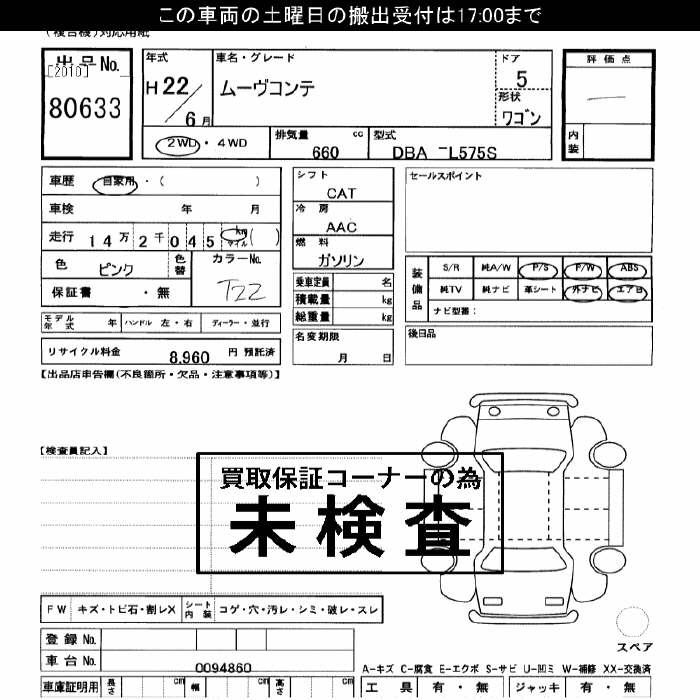 この車両の土曜日の搬出受付は17:00まで
(複合機)対応用紙
出品No.
[2010]
80633
年式
H22/6月
車名・グレード
ムーヴコンテ
ドア
5
形状
ワゴン
評価点
内装
2WD・4WD
排気量 660 cc
型式 DBA-L575S
車歴 自家用・( )
車検 年 月
走行 14万2千045 km マイル ( )
色 ピンク 色替
カラーNo. T22
保証書 ・無
シフト
CAT
冷房
AAC
燃料
ガソリン
乗車定員 名
積載量 kg
総重量 kg
セールスポイント
装備品
S/R 純A/W P/S P/W ABS
純TV 純ナビ 革シート 外ナビ エアB
ナビ型番:
モデル年式 年 ハンドル 左・右 ディーラー・並行
リサイクル料金 8,960 円 預託済
名変期限
月 日
後日品
【出品店申告欄(不良箇所・欠品・注意事項等)】
【検査員記入】
買取保証コーナーの為
未検査
FW キズ・トビ石・割レX シート内装 コゲ・穴・汚レ・シミ・破レ・スレ
登録No.
車台No. 0094860
スペア
A-キズ C-腐食 E-エクボ S-サビ U-凹ミ W-補修 XX-交換済
車庫証明用 長さ cm 幅 cm 高さ cm
工具 有・無 ジャッキ 有・無